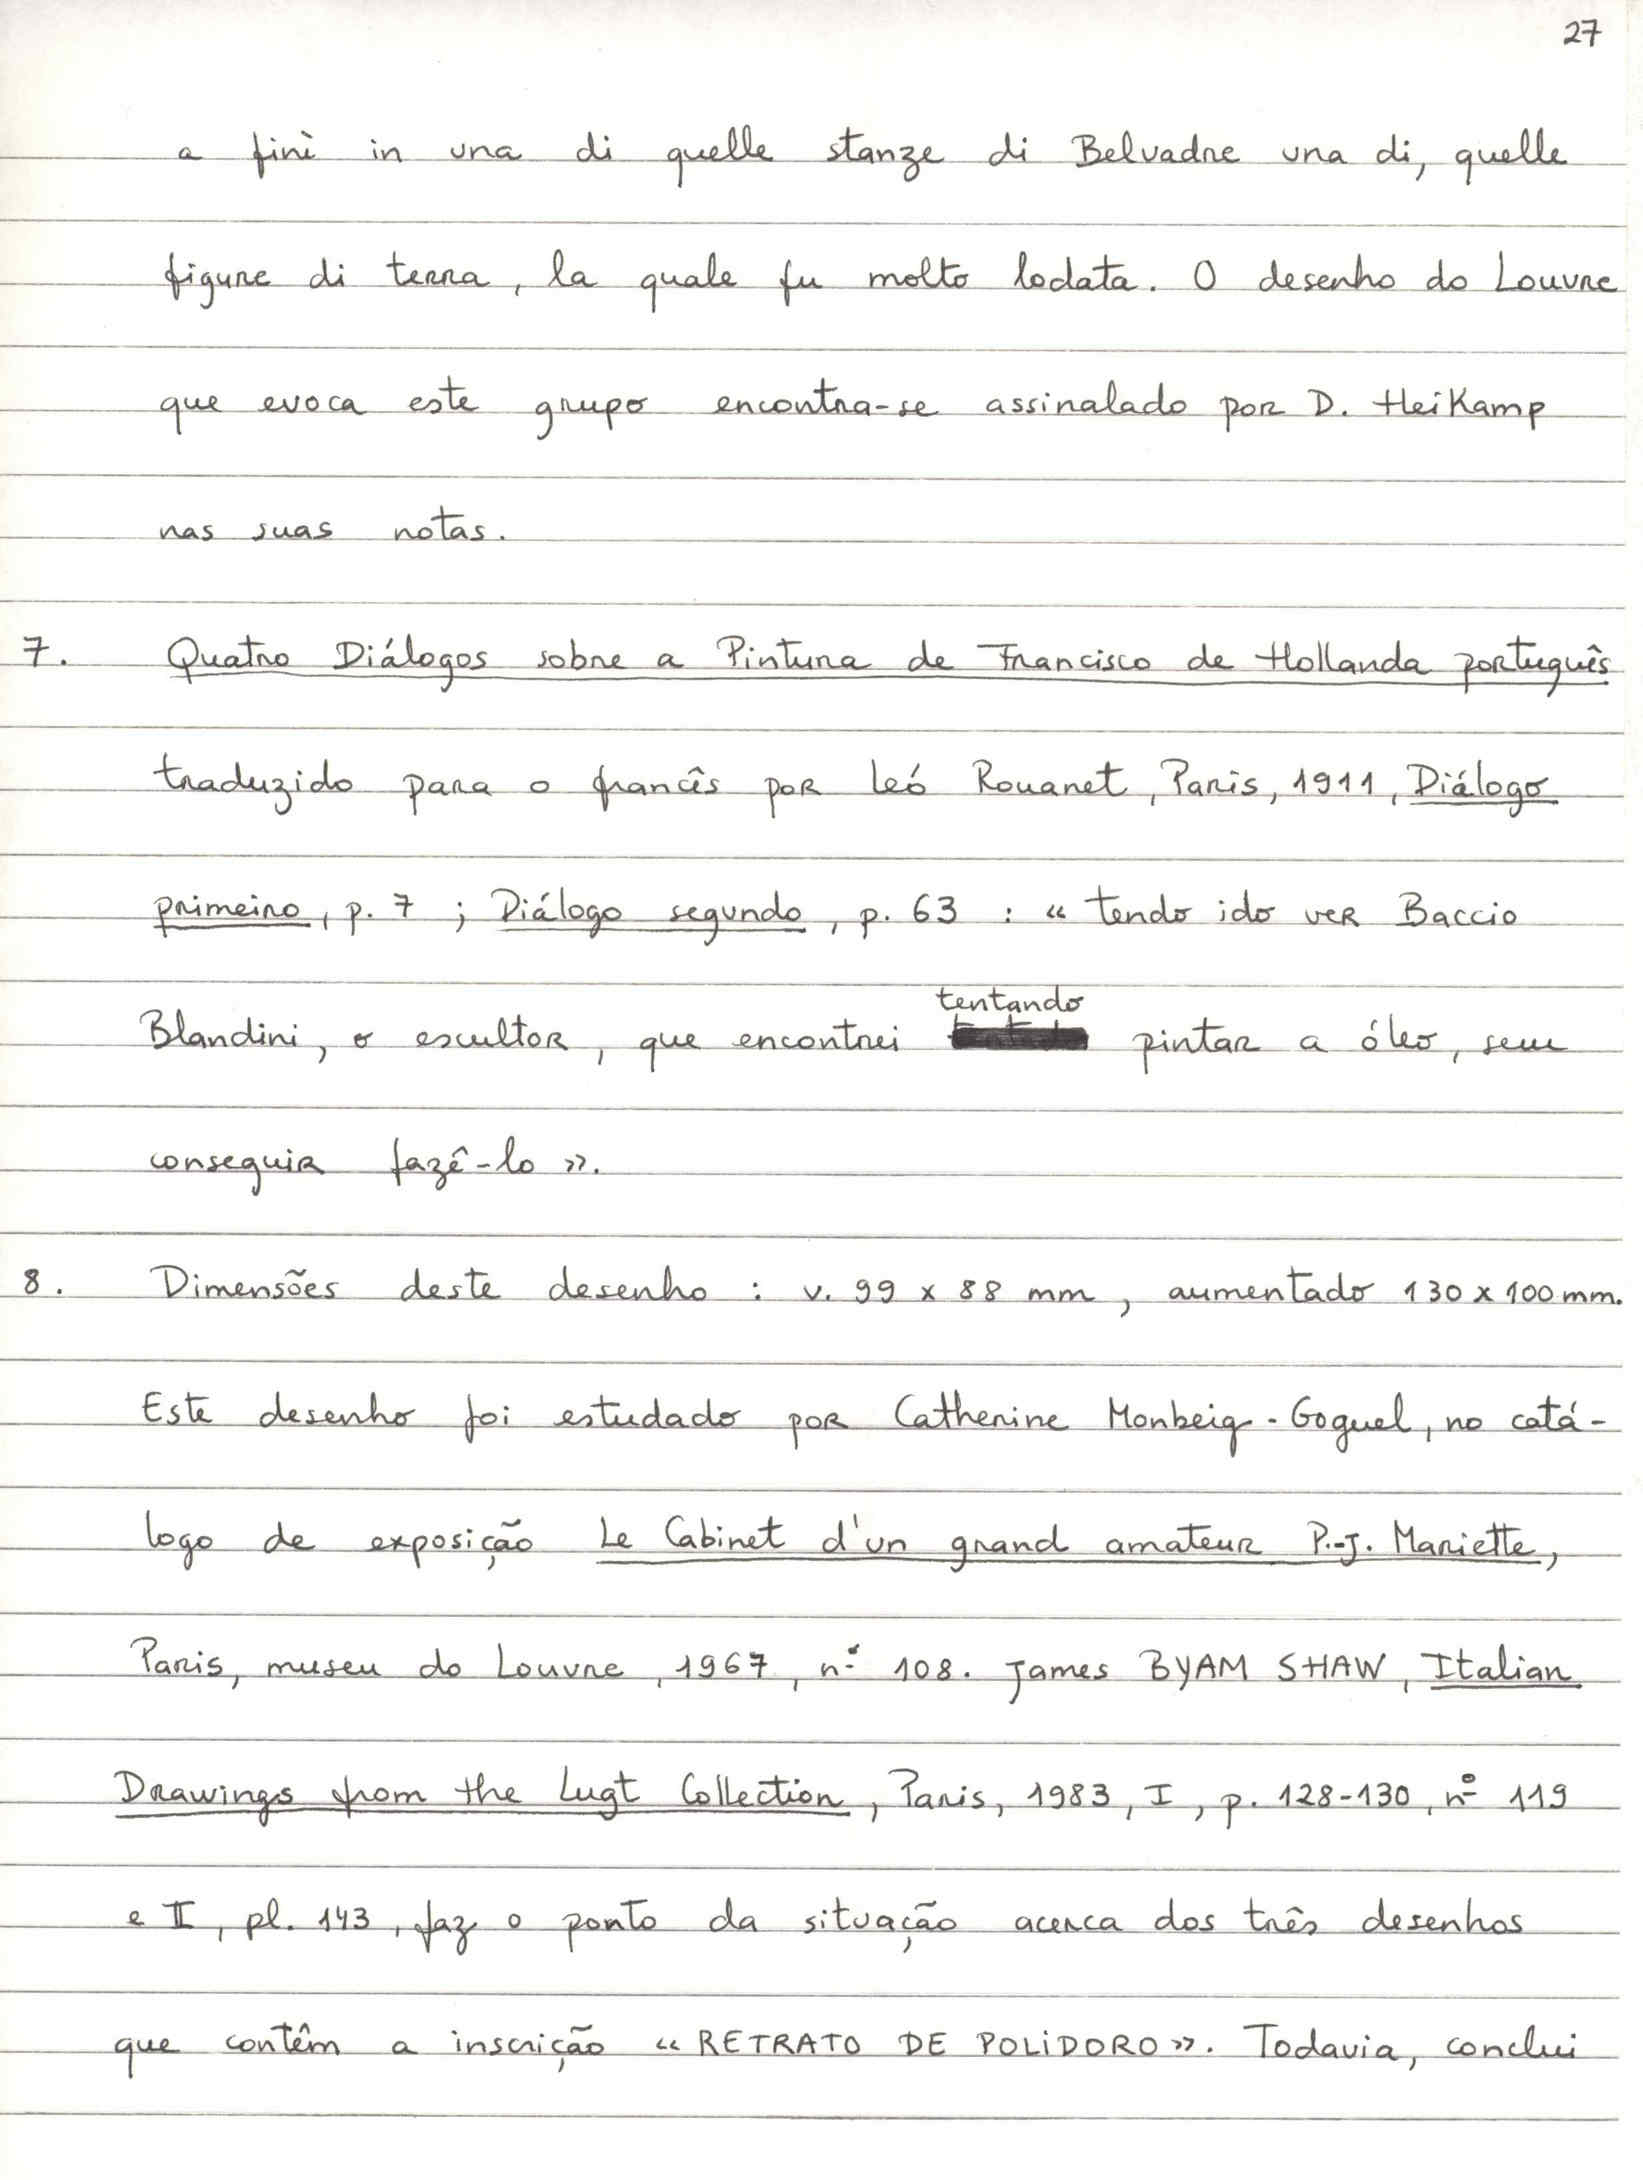 27
a finì in una di quelle stanze di Belvadre una di, quelle
figure di terra, la quale fu molto lodata. O desenho do Louvre
que evoca este grupo encontra-se assinalado por D. Heikamp
nas suas notas.
7. Quatro Diálogos sobre a Pintura de Francisco de Hollanda português
traduzido para o francês por Leó Rouanet, Paris, 1911, Diálogo
primeiro, p. 7 ; Diálogo segundo, p. 63 : « tendo ido ver Baccio
tentando
Blandini, o escultor, que encontrei pintar a óleo, sem
conseguir fazê-lo ».
8. Dimensões deste desenho : v. 99 x 88 mm, aumentado 130 x 100 mm.
Este desenho foi estudado por Catherine Monbeig-Goguel, no catá-
logo de exposição Le Cabinet d'un grand amateur P.-J. Mariette,
Paris, museu do Louvre, 1967, nº 108. James BYAM SHAW, Italian
Drawings from the Lugt Collection, Paris, 1983, I, p. 128-130, nº 119
e II, pl. 143, faz o ponto da situação acerca dos três desenhos
que contêm a inscrição « RETRATO DE POLIDORO ». Todavia, conclui